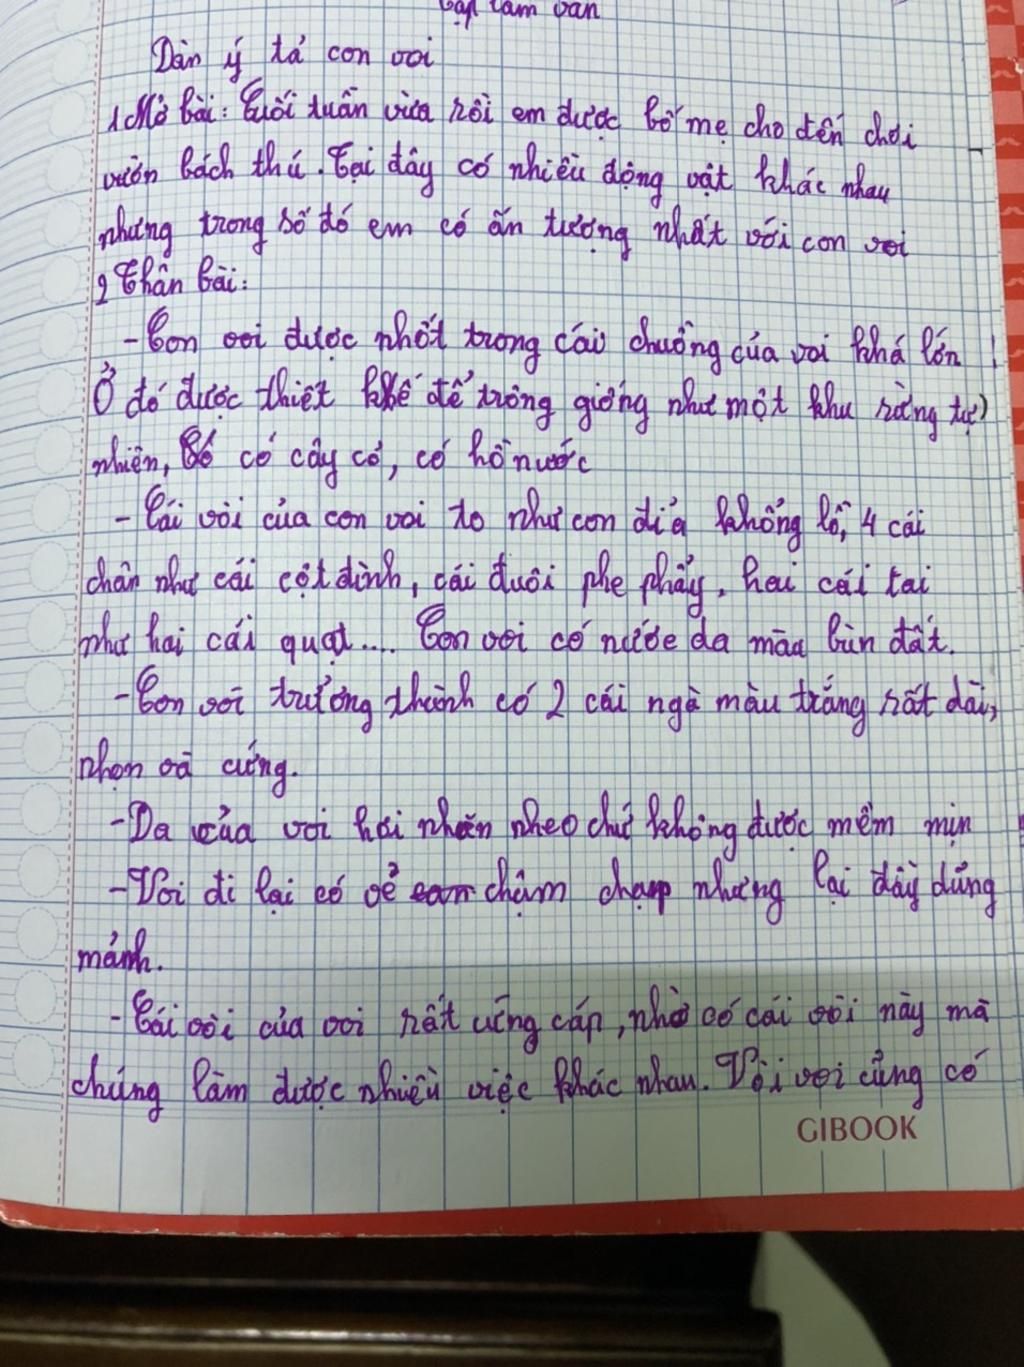 Tập làm văn
Dàn ý tả con voi
1 Mở bài: Cuối tuần vừa rồi em được bố mẹ cho đến chơi
vườn bách thú. Tại đây có nhiều động vật khác nhau
nhưng trong số đó em có ấn tượng nhất với con voi
2 Thân bài:
- Con voi được nhốt trong cái chuồng của voi khá lớn
Ở đó được thiết kế để trông giống như một khu rừng tự
nhiên, có cây cỏ, có hồ nước
- Cái vòi của con voi to như con đỉa khổng lồ, 4 cái
chân như cái cột đình, cái đuôi phe phẩy, hai cái tai
như hai cái quạt.... Con voi có nước da màu bùn đất.
- Con voi trưởng thành có 2 cái ngà màu trắng rất dài,
nhọn và cứng.
- Da của voi hơi nhăn nheo chứ không được mềm mịn
- Voi đi lại có vẻ chậm chạp nhưng lại đầy dũng
mảnh.
- Cái vòi của voi rất cứng cáp, nhờ có cái vòi này mà
chúng làm được nhiều việc khác nhau. Vòi voi cũng có
GIBOOK